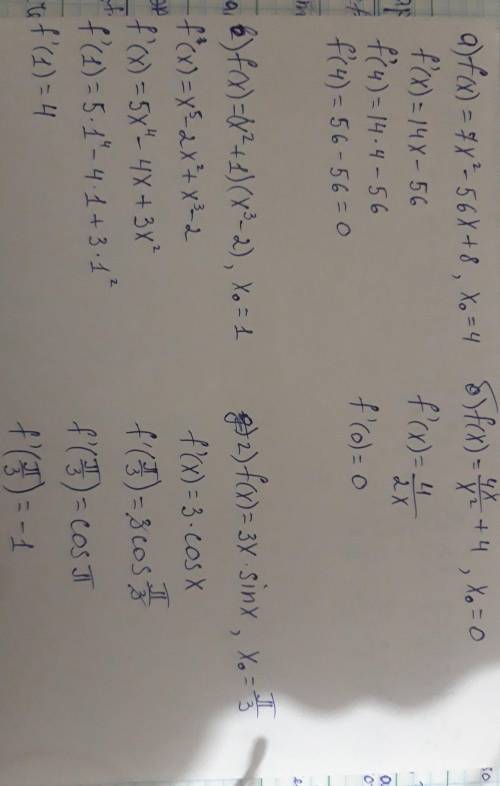 а) f(x) = 7x² - 56x + 8, x₀ = 4
f'(x) = 14x - 56
f'(4) = 14·4 - 56
f'(4) = 56 - 56 = 0
б) f(x) = 4x/x² + 4, x₀ = 0
f'(x) = 4/2x
f'(0) = 0
в) f(x) = (x² + 1)(x³ - 2), x₀ = 1
f(x) = x⁵ - 2x² + x³ - 2
f'(x) = 5x⁴ - 4x + 3x²
f'(1) = 5·1⁴ - 4·1 + 3·1²
f'(1) = 4
г) f(x) = 3x·sinx, x₀ = π/3
f'(x) = 3·cosx
f'(π/3) = 3cos π/3
f'(π/3) = cosπ
f'(π/3) = -1